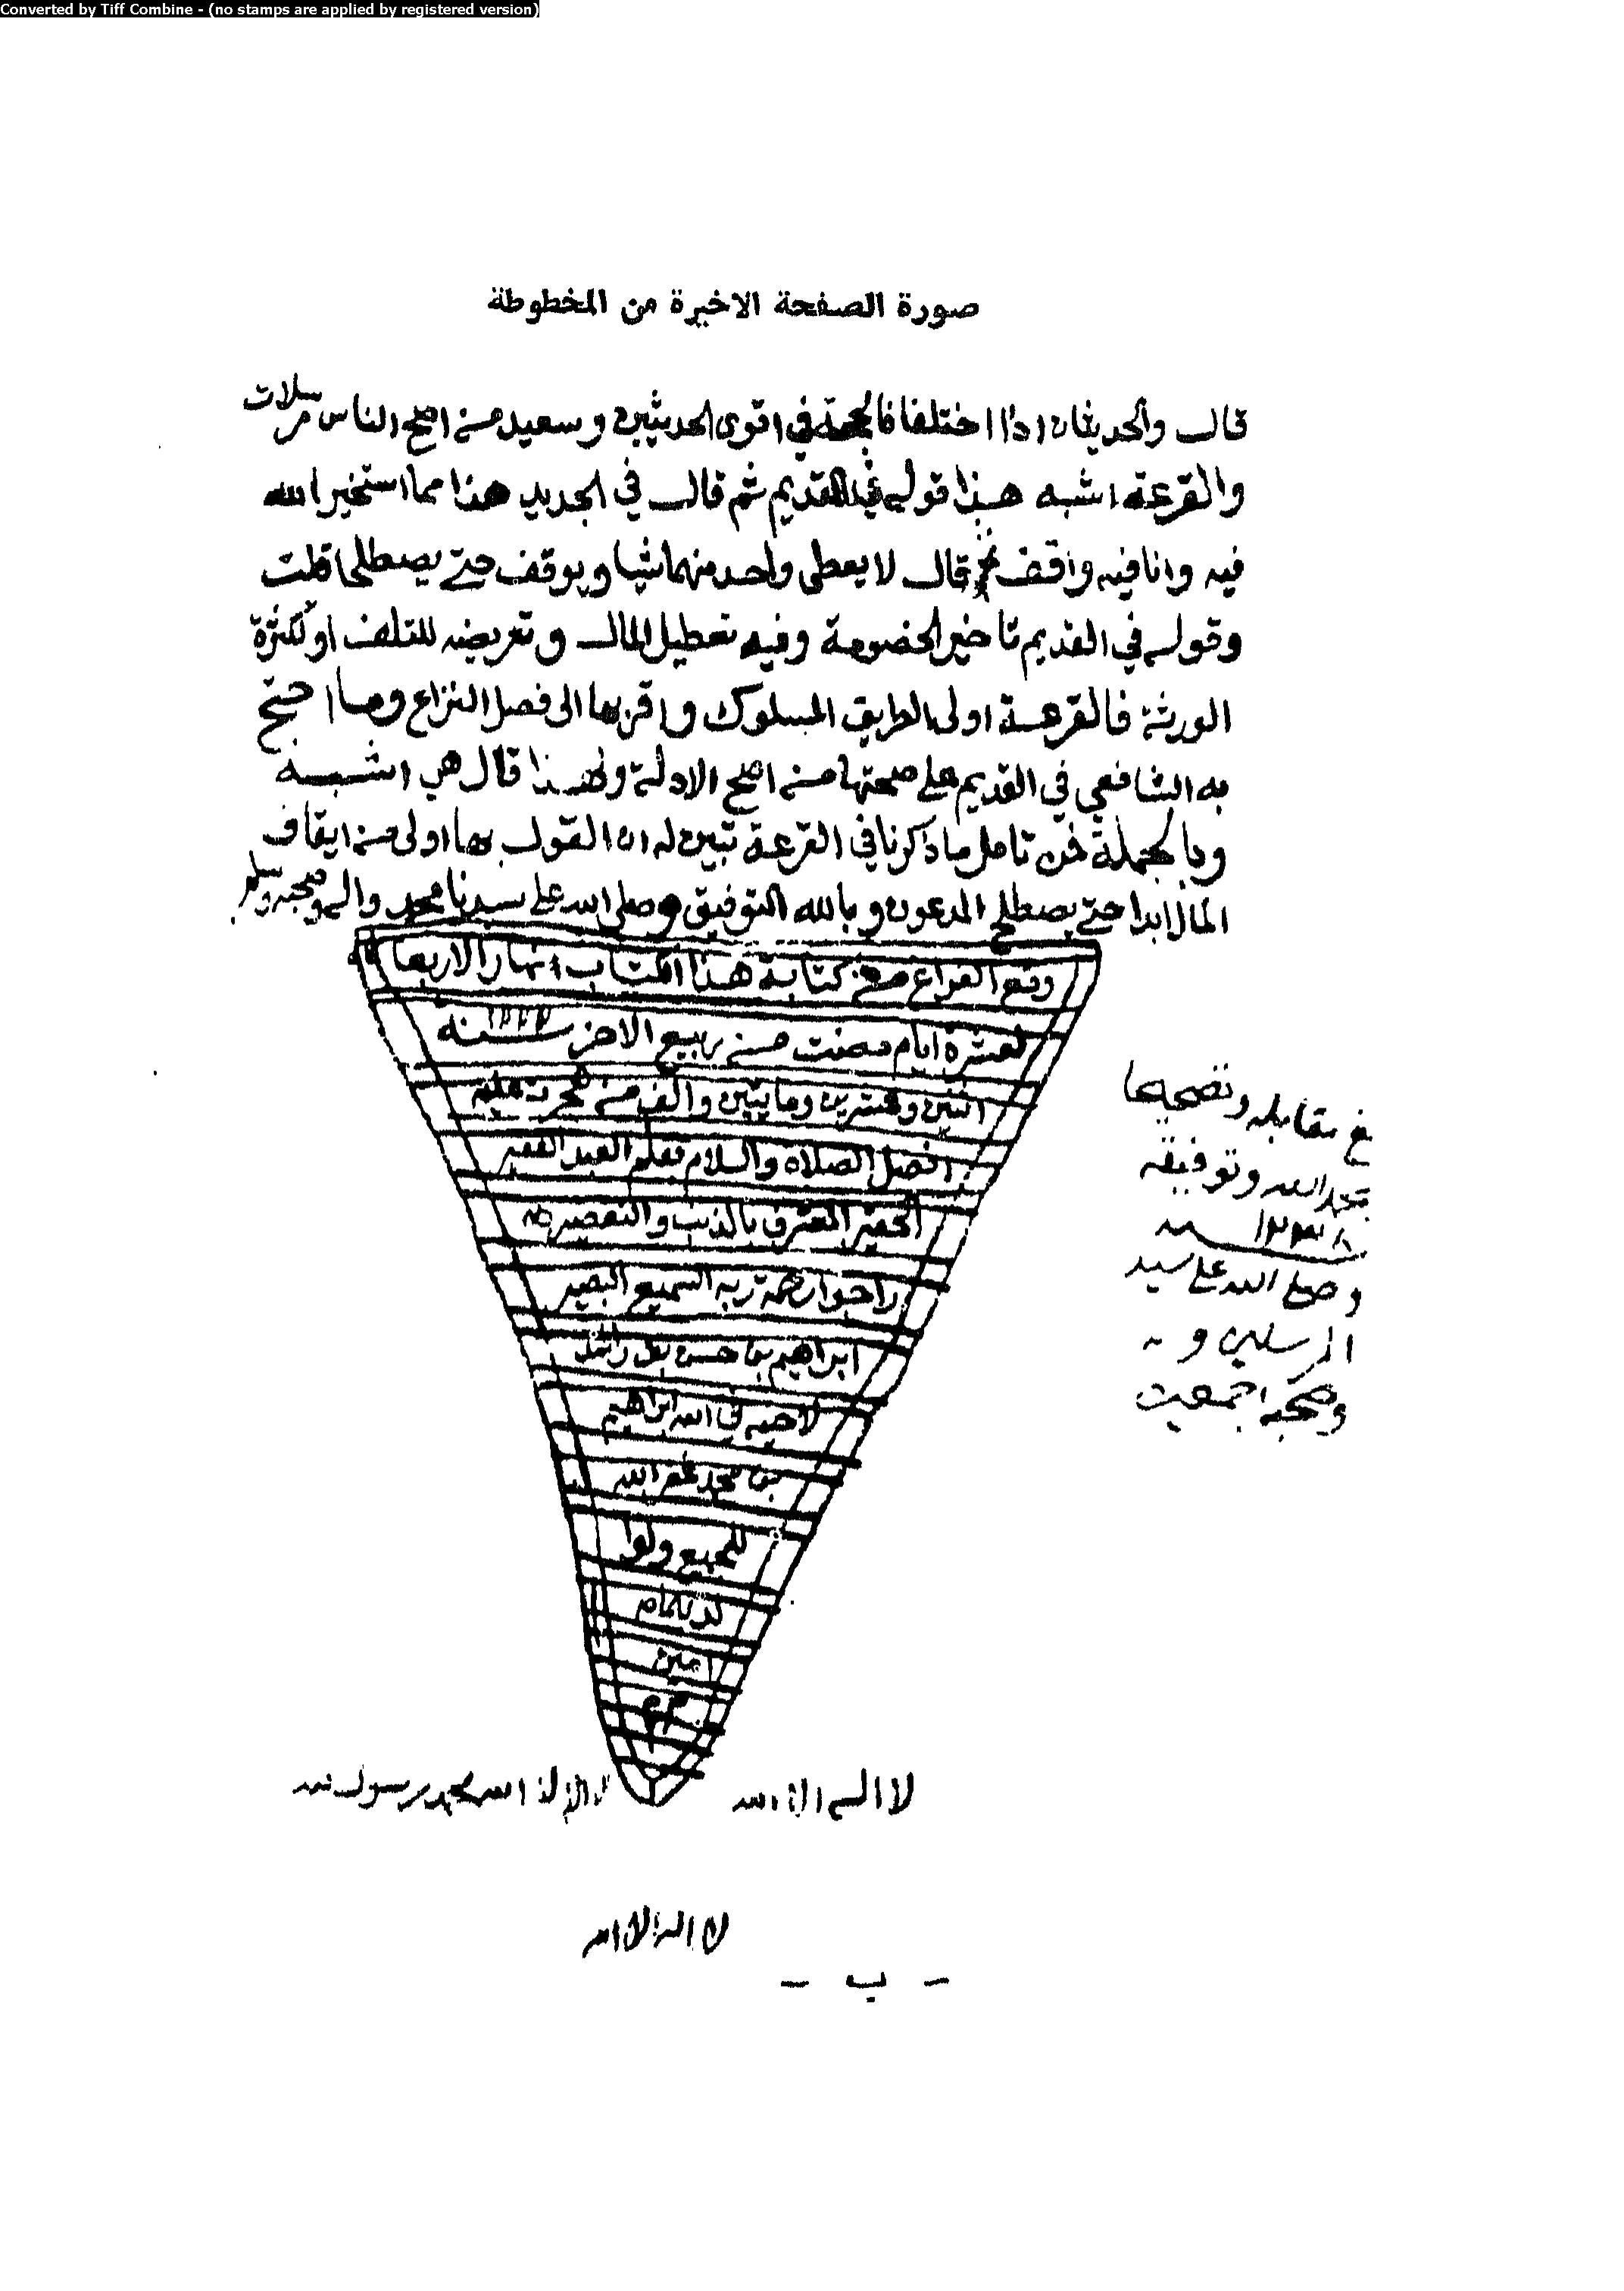 Converted by Tiff Combine - (no stamps are applied by registered version)
صورة الصفحة الاخيرة من المخطوطة
قال والحديثان اذا اختلفا فالحجة في اقوى الحديثين وسعيد من اصح الناس مرسلات
والقرعة اشبه هذا قوله في القديم ثم قال في الجديد هذا مما استخير الله
فيه وانا فيه واقف ثم قال لا يعطى واحد منهما شيا ويوقف حتى يصطلحا قلت
وقوله في القديم تاخير الخصومة وفيه تعطيل المال وتعريضه للتلف او لكثرة
الورثة فالقرعة اولى الطريق المسلوك واقربها الى فصل النزاع وما احتج
به الشافعي في القديم على صحتها من اصح الادلة ولهذا قال هي اشبه
وبالجملة فمن تامل ما ذكرنا في القرعة تبين له ان القول بها اولى من ايقاف
المال ابدا حتى يصطلح المدعون وبالله التوفيق وصلى الله على سيدنا محمد واله وصحبه وسلم
وقع الفراغ من كتابة هذا الكتاب نهار الاربعا
لعشرة ايام مضت من ربيع الاخر سنة
اثنين وعشرين ومايتين والف من هجرته عليه
افضل الصلاة والسلام بقلم العبد الفقير
الحقير المعترف بالذنب والتقصير
راجوا رحمة ربه السميع البصير
ابراهيم بن حسن بن راشد
لاخيه في الله ابراهيم
بن محمد غفر الله
للجميع ولوا
لديهم
امين
مقابله وتصحيحها
بحمد الله وتوفيقه
١٢٣٨
وصلى الله على سيد
المرسلين و
وصحبه اجمعين
لا اله الا الله
لا اله الا الله محمد رسول الله
لا اله الا الله
- ب -